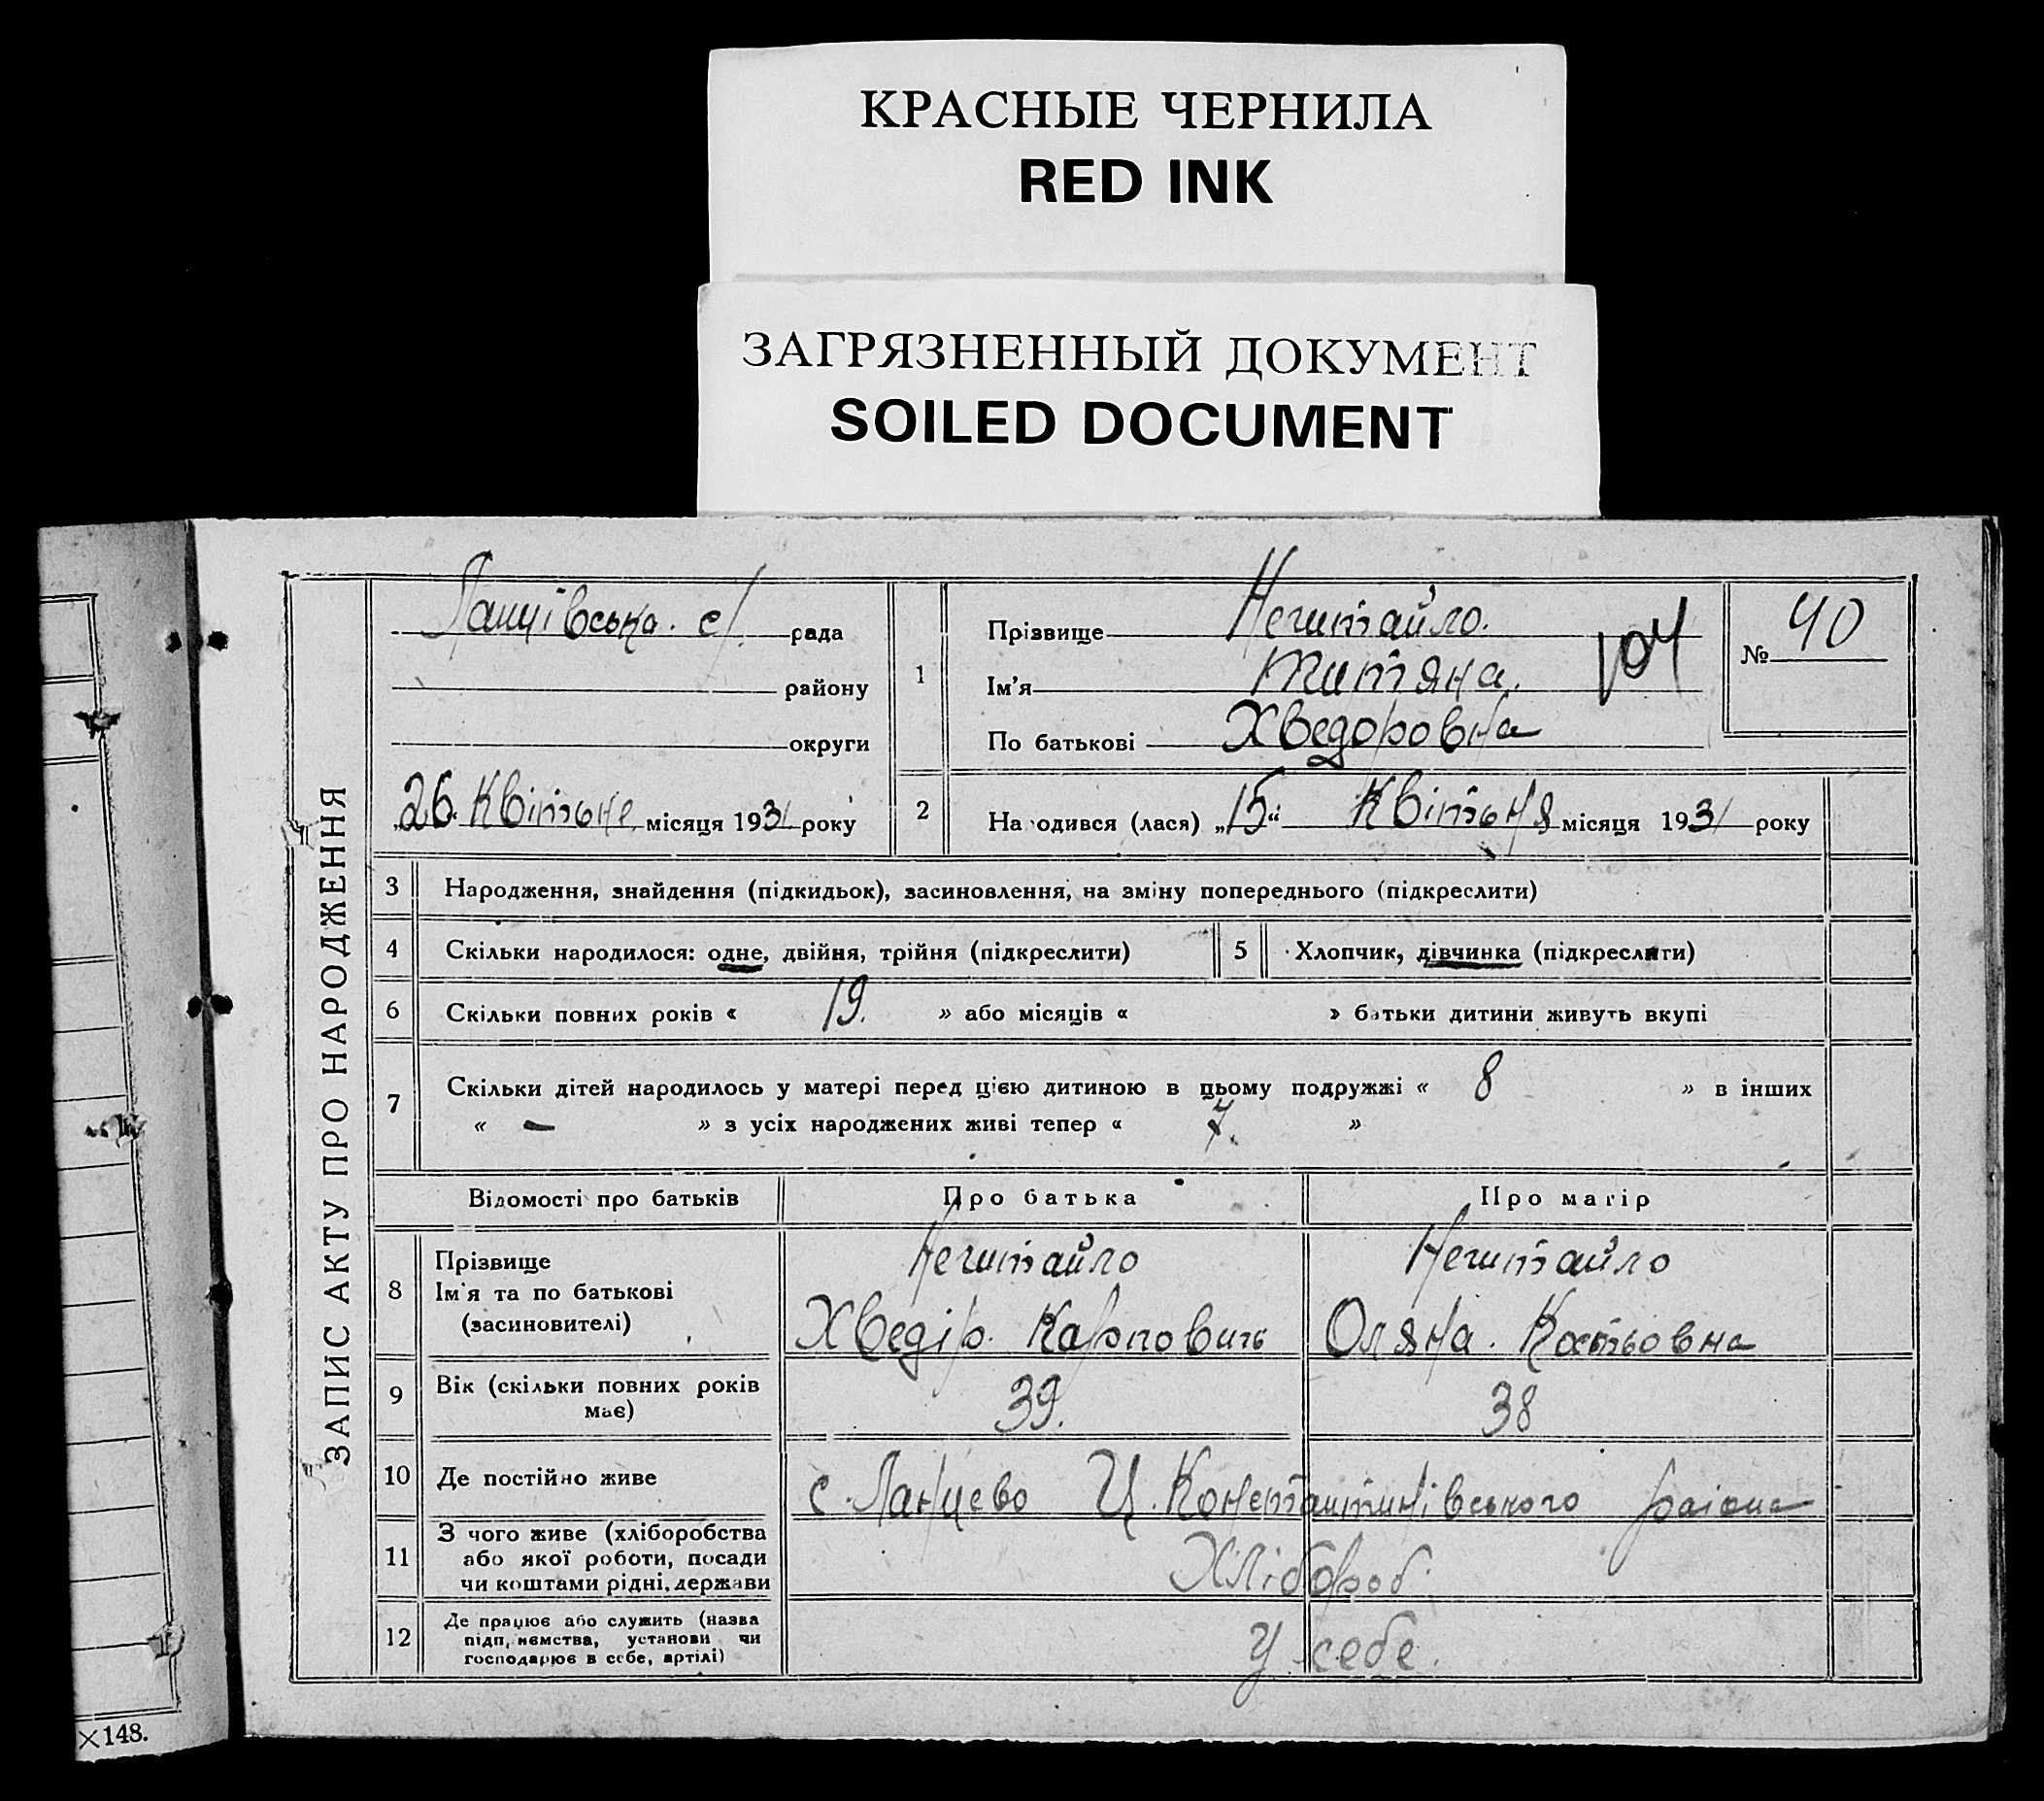 КРАСНЫЕ ЧЕРНИЛА
RED INK
ЗАГРЯЗНЕННЫЙ ДОКУМЕНТ
SOILED DOCUMENT
ЗАПИС АКТУ ПРО НАРОДЖЕННЯ
Ланцівська с/ рада
району
округи
26 Квітьне місяця 1931 року
1
Прізвище Нечитайло.
Ім'я Титяна.
По батькові Хведоровна
104
№ 40
2 На одився (лася) „15“ Квітьня місяця 1931 року
3 Народження, знайдення (підкидьок), засиновлення, на зміну попереднього (підкреслити)
4 Скільки народилося: одне, двійня, трійня (підкреслити) 5 Хлопчик, дівчинка (підкреслити)
6 Скільки повних років « 19. » або місяців « » батьки дитини живуть вкупі
7 Скільки дітей народилось у матері перед цією дитиною в цьому подружжі « 8 » в інших
« — » з усіх народжених живі тепер « 7. »
Відомості про батьків Про батька Про матір
8 Прізвище Нечитайло Нечитайло
Ім'я та по батькові
(засиновителі) Хведір. Карпович Оляна. Костьовна
9 Вік (скільки повних років
має) 39. 38
10 Де постійно живе с. Ланцево Ц. Констаитинівського раіона
11 З чого живе (хліборобства
або якої роботи, посади
чи коштами рідні, держави Хлібороб.
12 Де працює або служить (назва
підприємства, установи чи
господарює в себе, артілі) У себе.
×148.